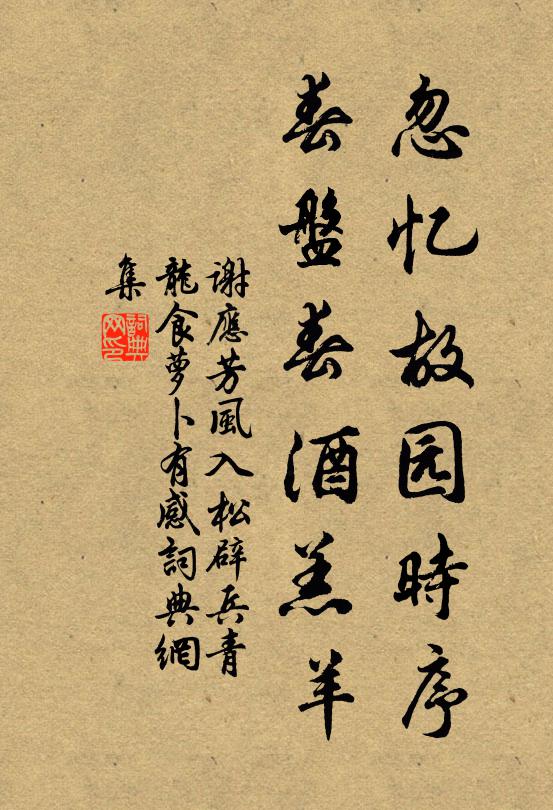 忽忆故园時序
春盤春酒羔羊
謝應芳風入松辟兵青
龍食萝卜有感詞典網
集
詞典网印